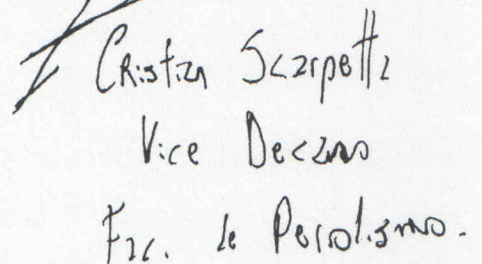 Cristian Scarpetta
Vice Decano
Fac. de Periodismo.